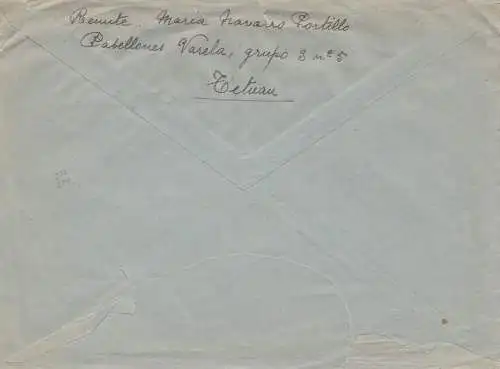 Remite. Maria Navarro Portillo
Pabellones Varela, grupo 3 nº 5
Tetuan